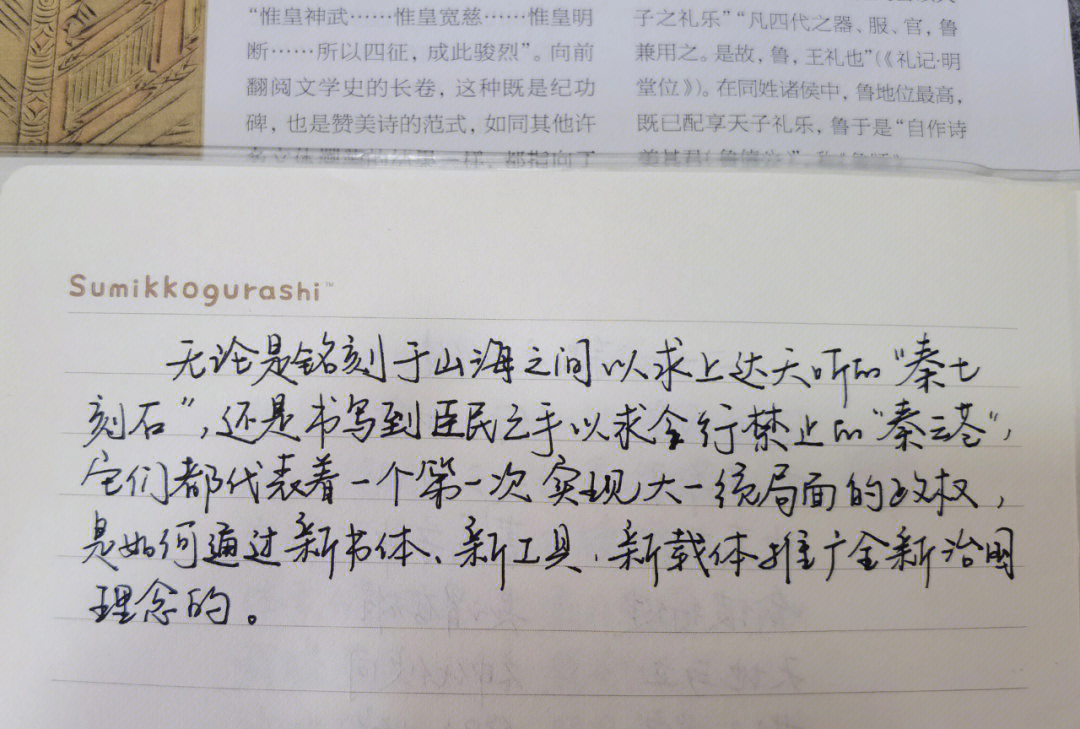 "惟皇神武……惟皇宽慈……惟皇明
断……所以四征，成此骏烈"。向前
翻阅文学史的长卷，这种既是纪功
碑，也是赞美诗的范式，如同其他许
一样，都指向了
子之礼乐""凡四代之器、服、官，鲁
兼用之。是故，鲁，王礼也"(《礼记·明
堂位》)。在同姓诸侯中，鲁地位最高，
既已配享天子礼乐，鲁于是"自作诗
美其君(鲁僖公)"，
Sumikkogurashi™
无论是铭刻于山海之间以求上达天听的"秦七
刻石"，还是书写到臣民之手以求令行禁止的"秦三苍"，
它们都代表着一个第一次实现大一统局面的政权，
是如何通过新书体、新工具、新载体推广全新治国
理念的。